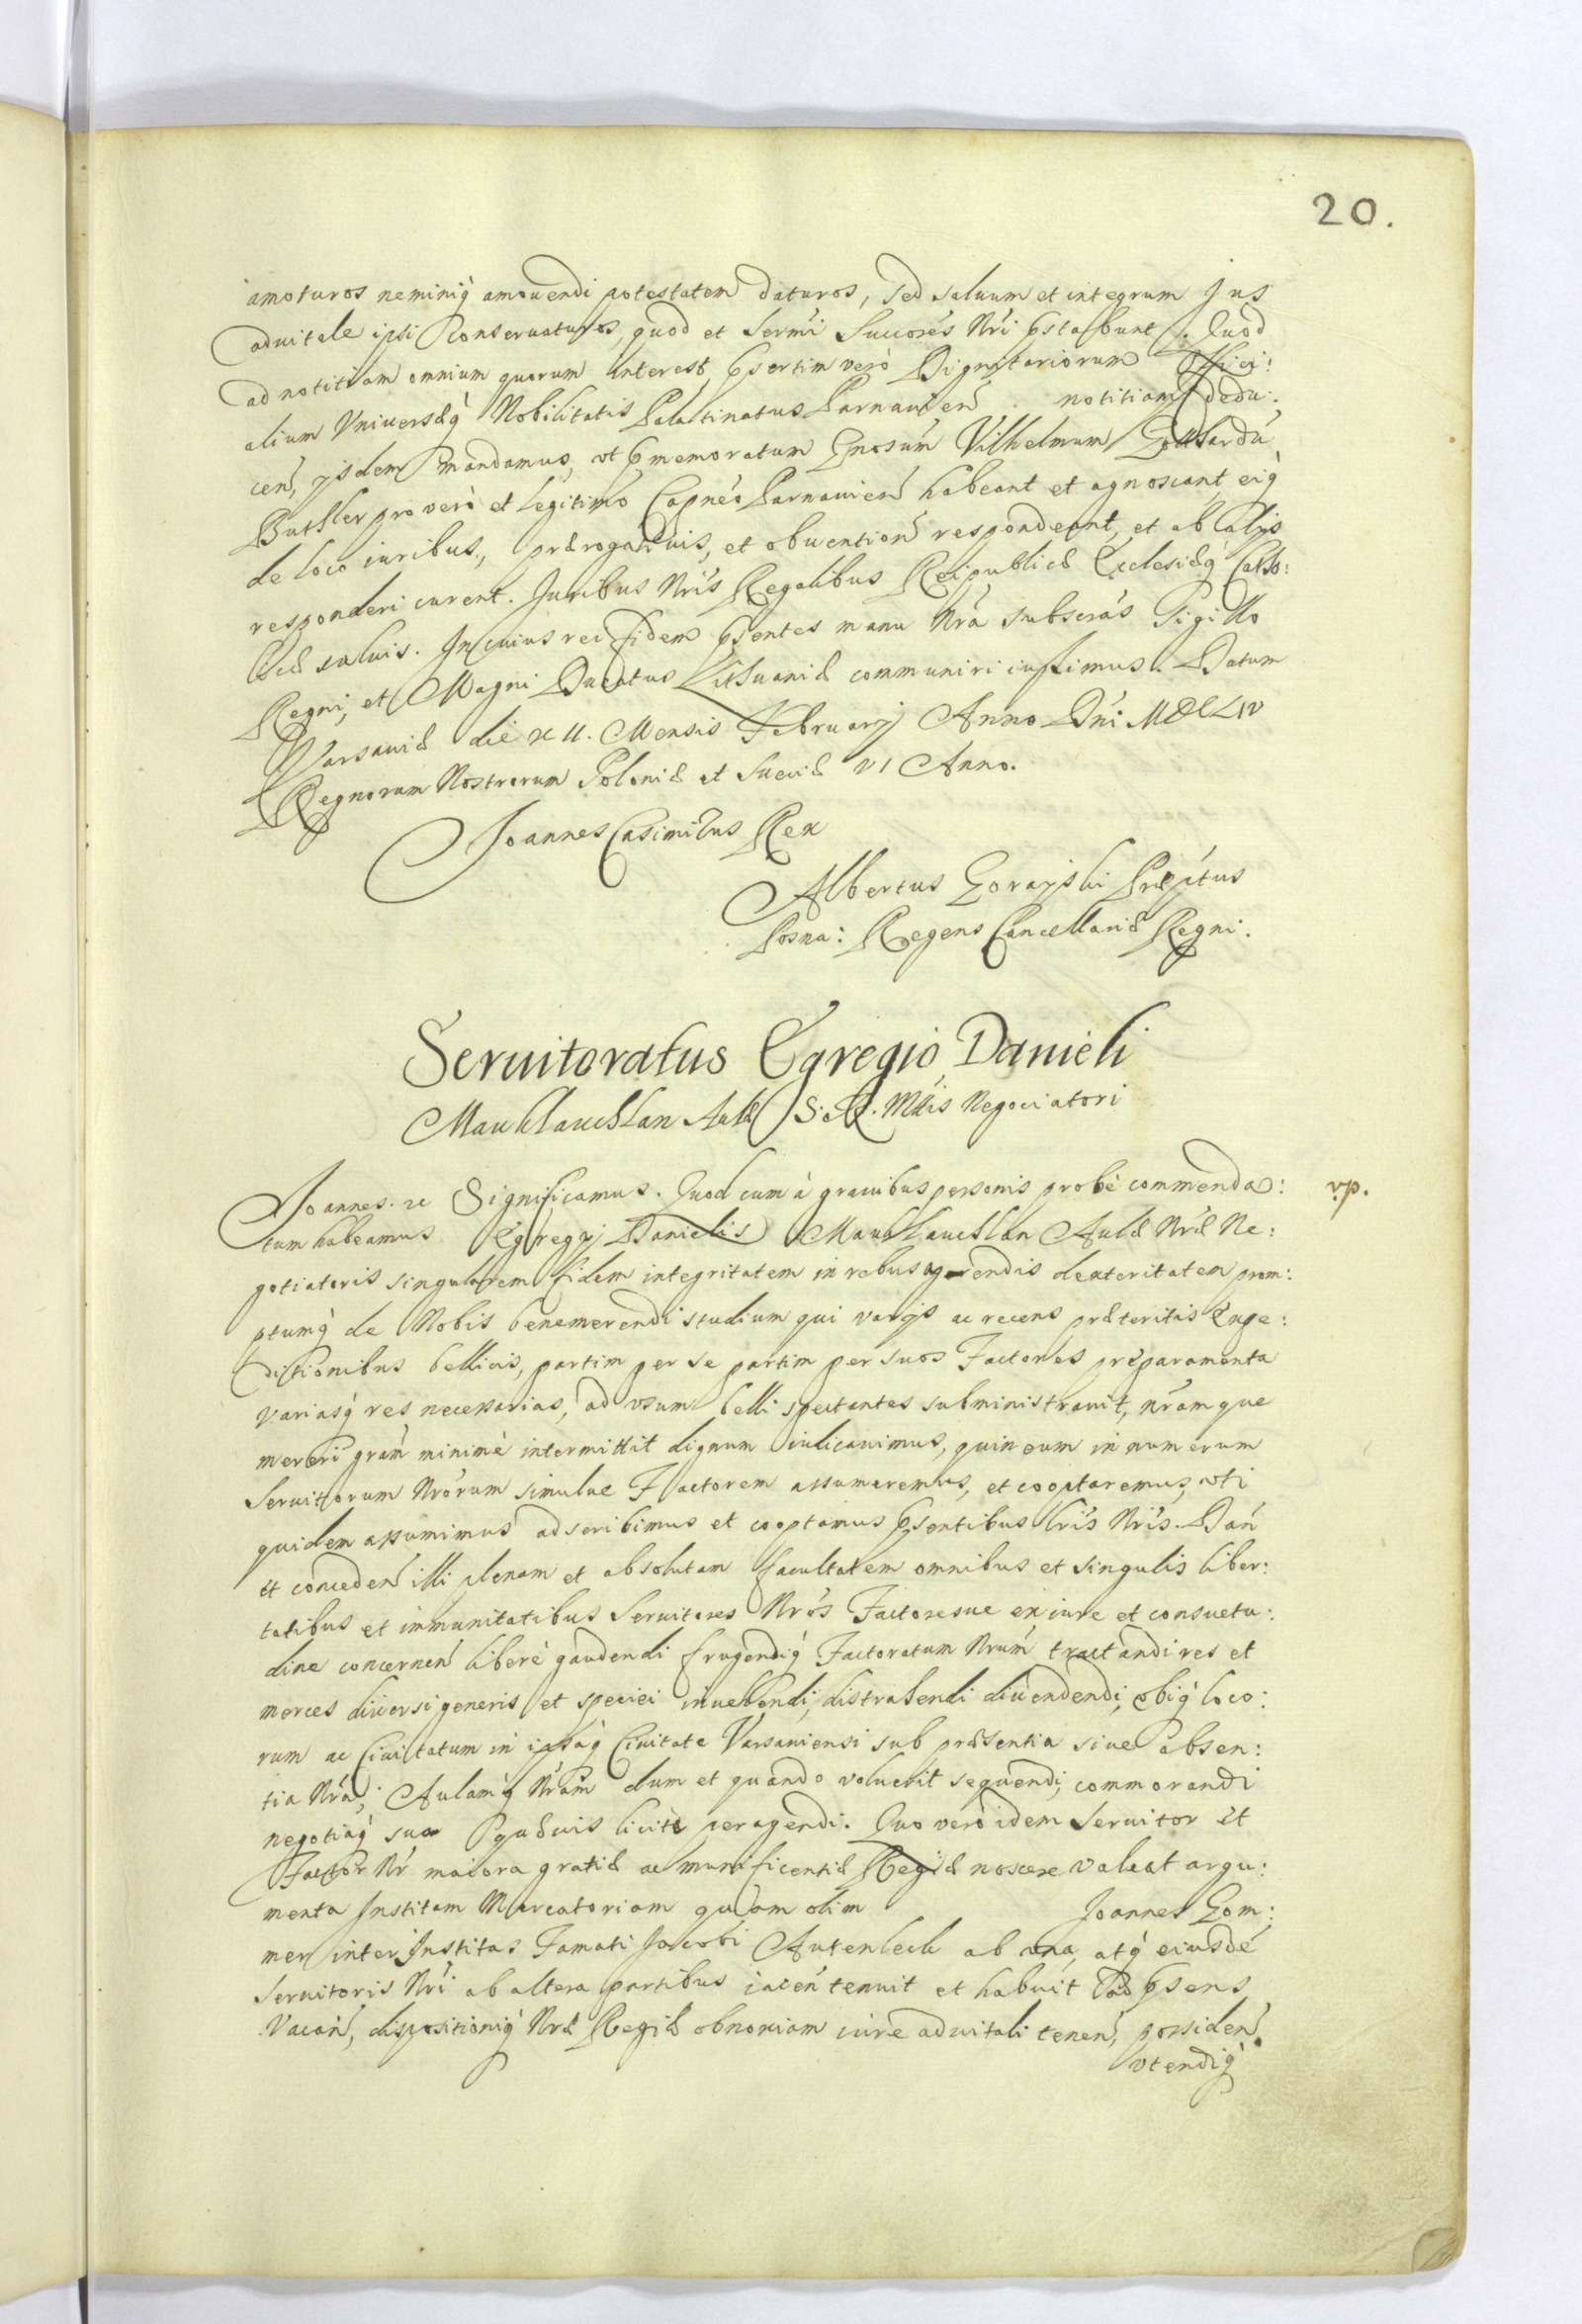 20.
amoturos neminiq́ amouendi potestatem daturos, sed saluum et integrum Jus
aduitale ipsi conseruaturos, quod et Sermi Succores Nri pstabunt. Quod
ad notitiam omnium quorum interest, psertim verò Dignitariorum Offici:
alium Vniversæq́ Nobilitatis Palatinatus Parnauien notitiam dedu:
cen, ijsdem mandamus, vt pmemoratum Gnosum Vilhelmum Gotthardu
Buttler pro verò et legitimo Capneo Parnauien habeant et agnoscant, eiq́
de loco iuribus, prærogatiuis, et obuention respondeant, et ab alijs
responderi curent. Juribus Nris Regalibus Reipublicæ Ecclesiæq́ Catho:
licæ saluis. In cuius rei fidem psentes manu Nrâ subscras Sigillo
Regni, et Magni Ducatus Lithuaniæ communiri iussimus. Datum
Varsauiæ die XII. Mensis Februarij Anno Dni MDCLIV
Regnorum Nostrorum Poloniæ et Sueciæ VI Anno.
Joannes Casimirus Rex
Albertus Gorayski Præptus
Posna: Regens Cancellariæ Regni.
Seruitoratus Egregio Danieli
Mauklauchlan Aulæ S. R. Mtis Negociatori
Joannes. etc Significamus. Quod cum à grauibus personis probè commenda: v.p.
tum habeamus Egregij Danielis Mauklauchlan Aulæ Nræ Ne:
gotiatoris singularem fidem integritatem in rebus agendis dexteritatem prom:
ptumq́ de Nobis benemerendi studium qui varijs ac recens præteritis Expe:
ditionibus bellicis, partim per se partim per suos Factores præparamenta
variasq́ res necessarias, ad vsum belli spectantes subministrauit, nramque
mereri gram minimè intermittit dignum iudicauimus, quin eum in numerum
Seruitorum Nrorum simulue Factorem assumeremus, et cooptaremus, vti
quidem assumimus adscribimus et cooptamus psentibus lris Nris. Dan
et conceden illi plenam et absolutam facultatem omnibus et singulis liber:
tatibus et immunitatibus Seruitores Nros Factoresue ex iure et consuetu:
dine concernen liberè gaudendi fruendiq́ Factoratum Nrum tractandi res et
merces diuersi generis et speciei inuehendi, distrahendi diuendendi, vbiq́ loco:
rum ac Ciuitatum in ipsaq́ Ciuitate Varsauiensi sub præsentia siue absen:
tia Nra; Aulamq́ Nram dum et quando voluerit sequendi, commorandi
negotiaq́ sua quæuis licitè peragendi. Quo verò idem Seruitor et
Factor Nr maiora gratiæ ac munificentiæ Regiæ noscere valeat argu:
menta Institam Mercatoriam quam olim Joannes Gom:
mer inter Institas Famati Jacobi Autenleck ab vna, atq́ eiusdé
Seruitoris Nri ab altera partibus iacen tenuit et habuit ad psens
Vacan, dispositioniq́ Nræ Regiæ obnoxiam iure aduitali tenen, possiden
vtendiq́